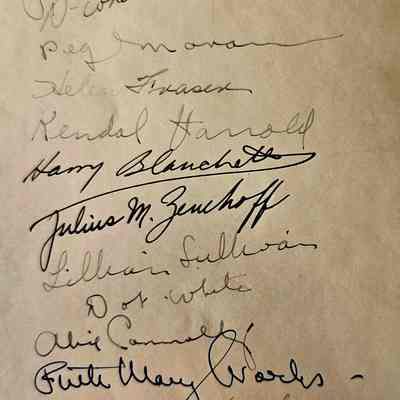 Peg Moran
Helen Fraser
Kendal Harrold
Harry Blanchette
Julius M. Zenchoff
Lillian Sullivan
Dot White
Alice Connolly
Ruth Mary Works -